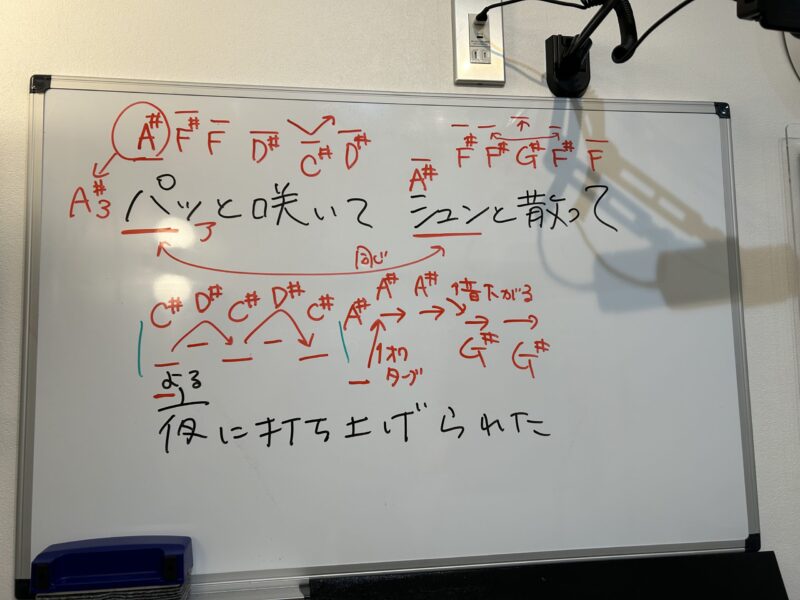 A# F# F D# C# D# F# F# G# F# F
A#3 A#
パッと咲いて シュンと散って
3
同じ
C# D# C# D# C# A# A# A# 1音下がる
G# G#
1オクターブ
よる
夜に打ち上げられた